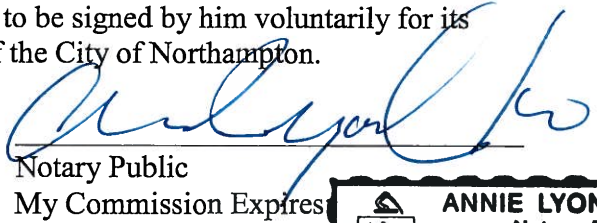 to be signed by him voluntarily for its
the City of Northampton.
Notary Public
My Commission Expires
ANNIE LYON